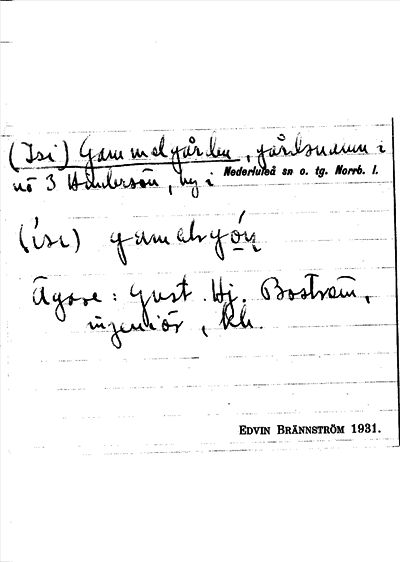 (Isi) Gammelgården, gårdsnamn i
nö 3 Hindersön, by i Nederluleå sn o. tg. Norrb. l.
(i̍si) gamelgọ́ṇ
Ägare: Gust. Hj. Boström,
ingeniör, Lh.
EDVIN BRÄNNSTRÖM 1931.